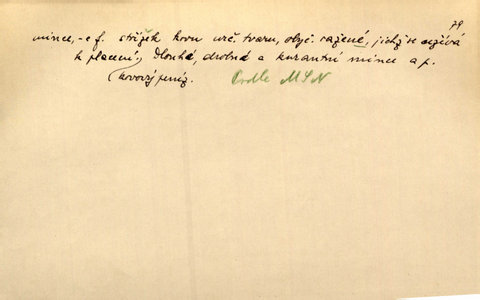 79
mince, -e f. střížek kovu urč. tvaru, obyč. ražené, jichž se užívá
k placení; Dlouhá, drobná a kurantní mince a p.
kovový peníz. Podle MSN